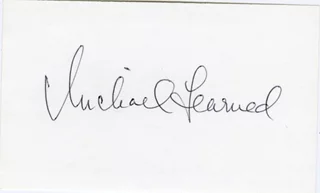 Michael Learned